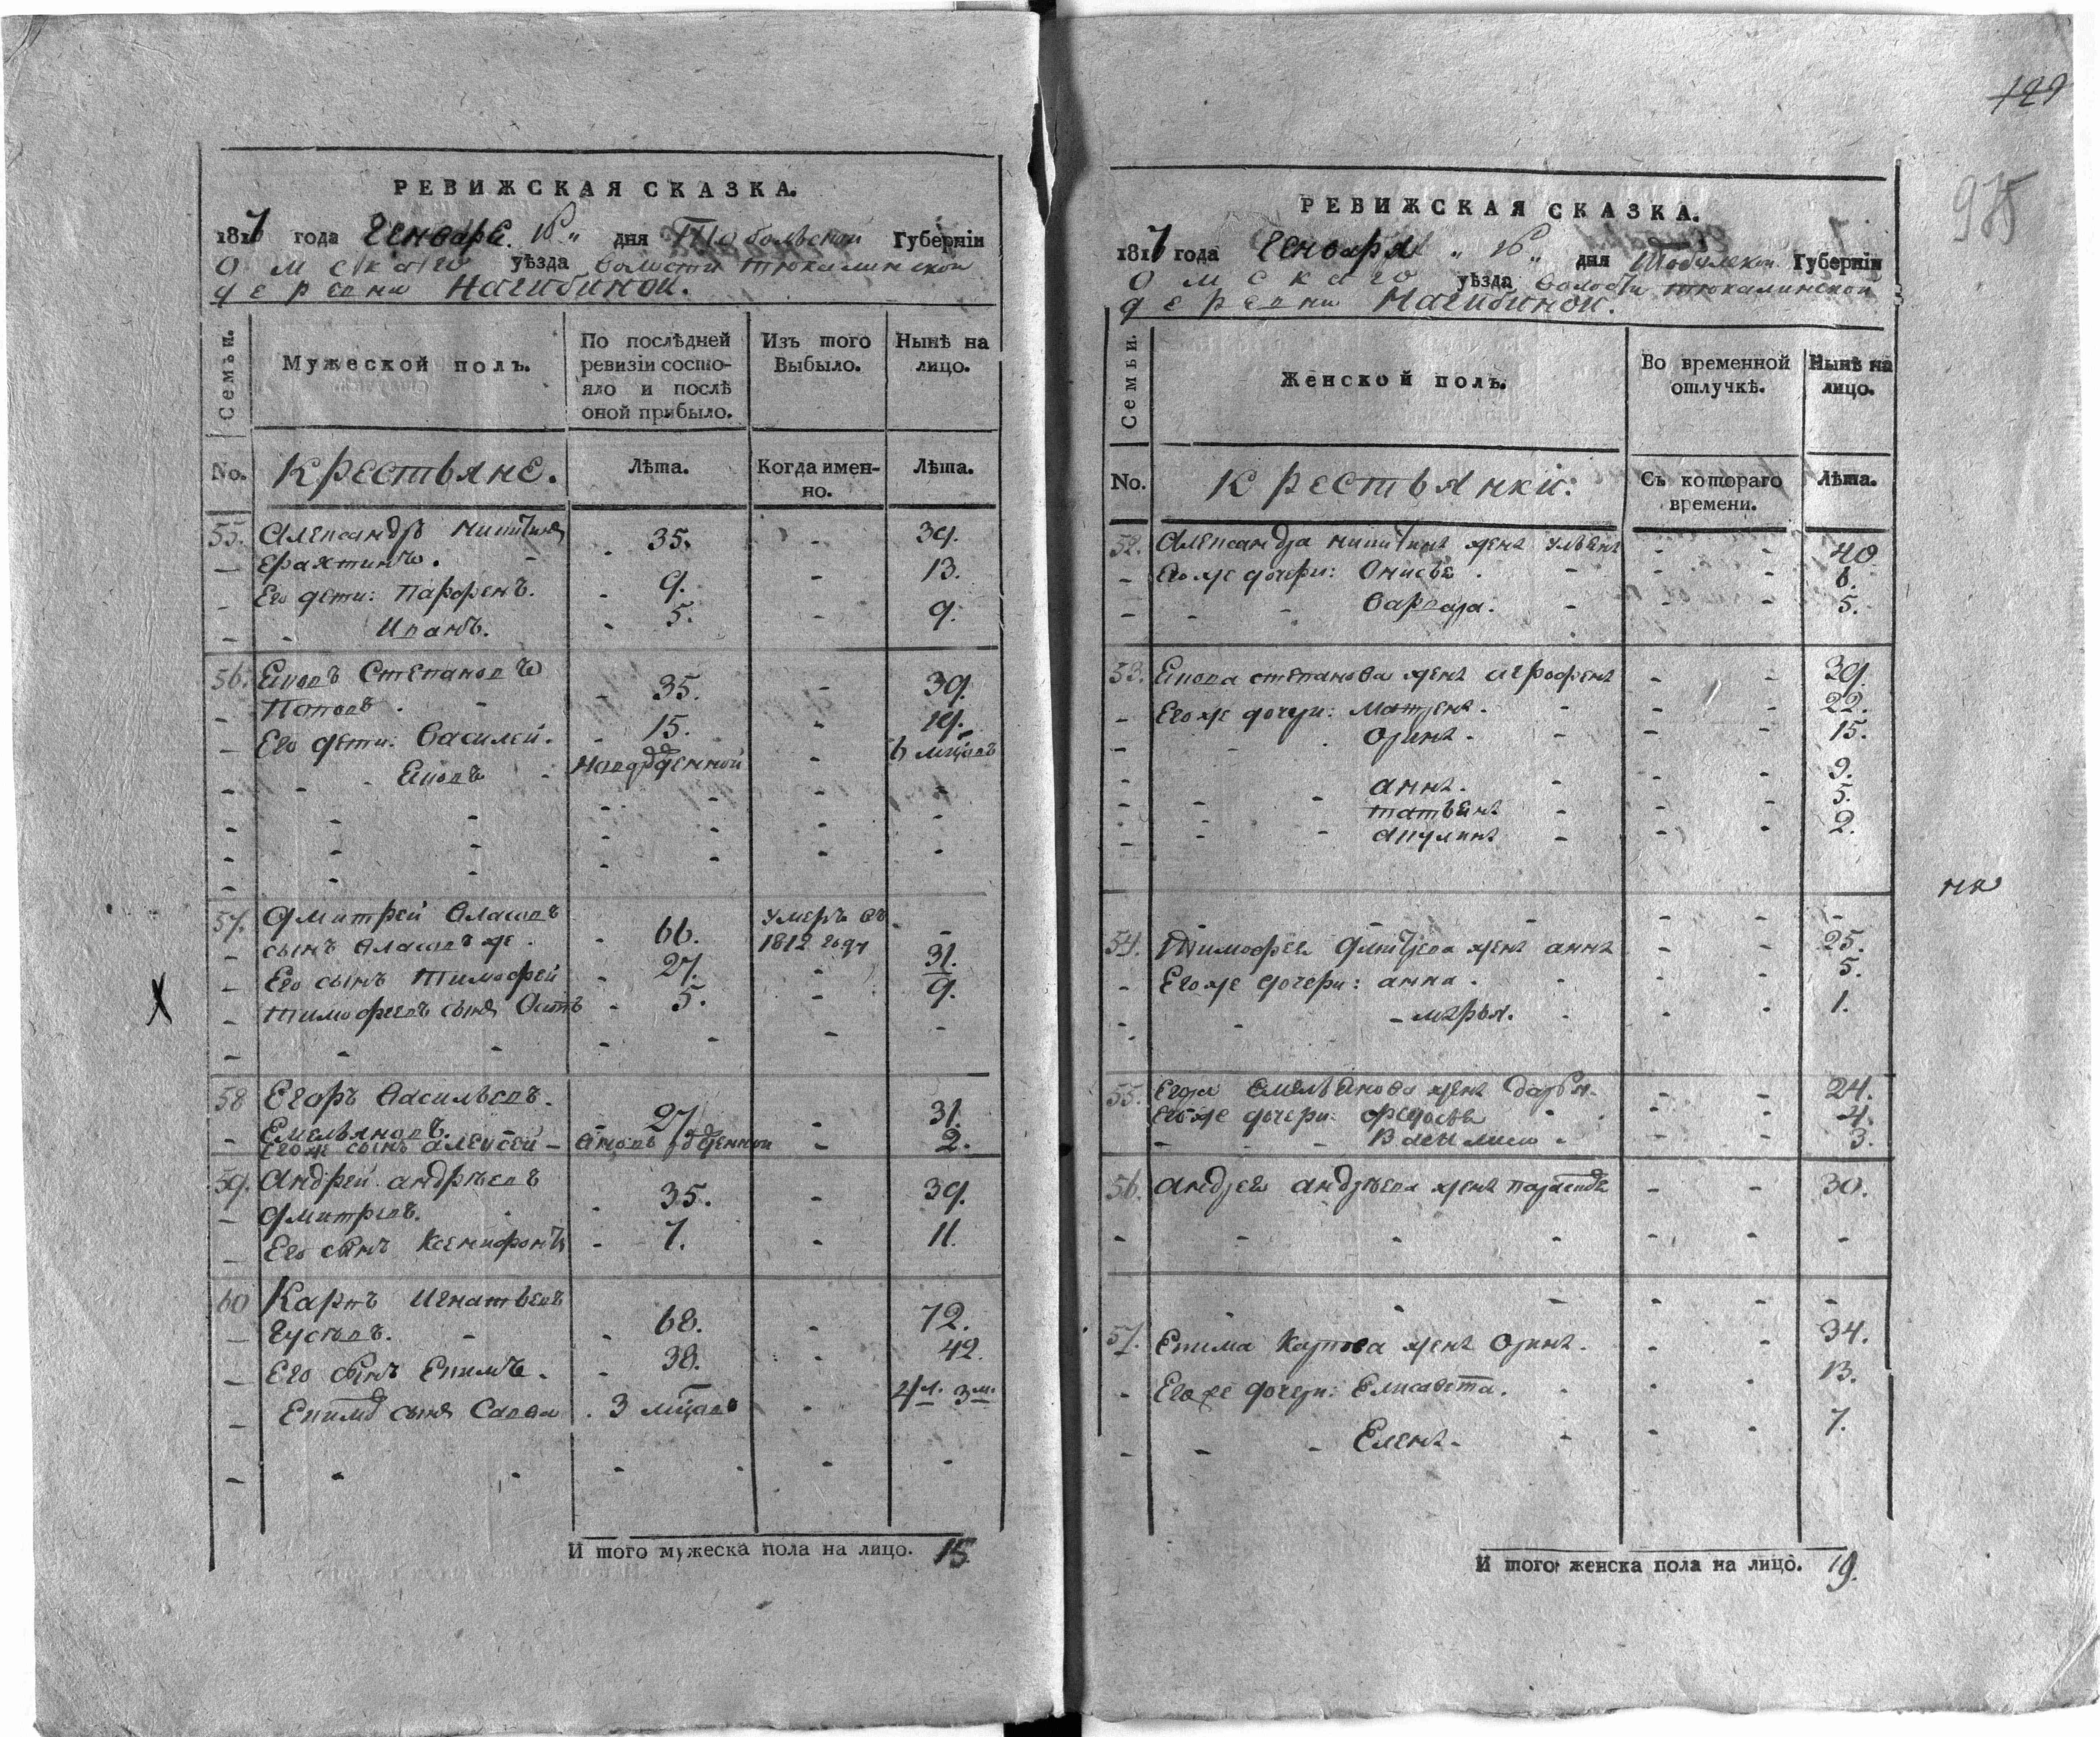 РЕВИЖСКАЯ СКАЗКА.
1817 года Генваря 16 дня Тобольской Губернїи
Омскаго уѣзда волости тюкалинской
деревни Нагибиной.
Семьи.
Мужеской полъ.
По послѣдней ревизїи состо-
яло и послѣ
оной прибыло.
Изъ того
Выбыло.
Нынѣ на
лицо.
No.
Крестьяне.
Лѣта.
Когда имен-
но.
Лѣта.
55. Александръ Никитинъ
35. - 39.
Его дети: Парфенъ. 9. - 13.
Иванъ. 5. - 9.
56. Яковъ Степановъ
Поповъ. 35. - 39.
Его дети: Василей. 15. - 19.
Яковъ новорожденной - 6 мцовъ
57. Дмитрей Власовъ
сынъ Власовъ же. 66. умеръ въ
1812 году -
Его сынъ Тимофей 27. - 31.
Тимофеевъ сынъ 5. - 9.
58 Егоръ Васильевъ.
Емельяновъ. 27. - 31.
Егоже сынъ Алексей - вновь рожденной - 2.
59. Андрей андрѣевъ
Дмитриевъ. 35. - 39.
Его сынъ Ксенофонтъ - 7. - 11.
60 Карпъ Игнатьевъ
Гусевъ. 68. - 72.
Его сынъ Екимъ. 38. - 42.
Екимовъ сынъ Савва 3 мцовъ - 4 л. 3 м.
И того мужеска пола на лицо. 15.
129
975
РЕВИЖСКАЯ СКАЗКА.
1817 года Генваря 16 дня Тобольской Губернїи
Омскаго уѣзда волости тюкалинской
деревни Нагибиной.
Семьи.
Женской полъ.
Во временной
отлучкѣ.
Нынѣ на
лицо.
No.
Крестьянки:
Съ котораго
времени.
Лѣта.
52. Александра никитина жена ульяна - - 40
Егоже дочери: Анисья - - 6.
Варвара. - - 5.
53. Якова степанова жена агрофена - - 39.
Егоже дочери: матрена. - - 22.
Орина. - - 15.
анна. - - 9.
татьяна - - 5.
акулина - - 2.
54. Тимофея дмитрева жена анна - - 25.
Егоже дочери: анна. - - 5.
марья. - - 1.
55. Егора Емельянова жена дарья. - - 24.
Егоже дочери: федосья - - 4.
Василиса - - 3.
56. андрея андрѣева жена - - 30.
57. Екима Карпова жена Орина. - - 34.
Егоже дочери: Елисавета. - - 13.
Елена. - - 7.
И того женска пола на лицо. 19.